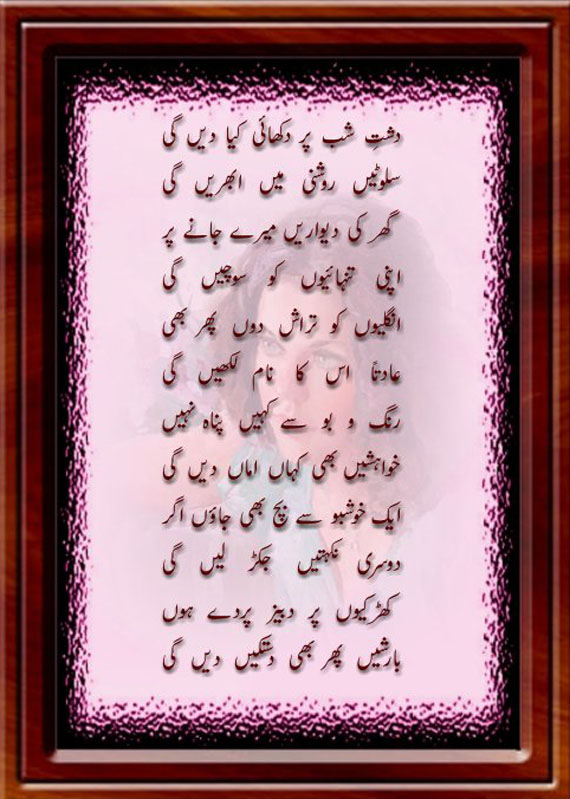 دشتِ شب پر دکھائی کیا دیں گی
سلوٹیں روشنی میں ابھریں گی
گھر کی دیواریں میرے جانے پر
اپنی تنہائیوں کو سوچیں گی
انگلیوں کو تراش دوں پھر بھی
عادتاً اس کا نام لکھیں گی
رنگ و بو سے کہیں پناہ نہیں
خواہشیں بھی کہاں اماں دیں گی
ایک خوشبو سے بچ بھی جاؤں اگر
دوسری نکہتیں جکڑ لیں گی
کھڑکیوں پر دبیز پردے ہوں
بارشیں پھر بھی دستکیں دیں گی